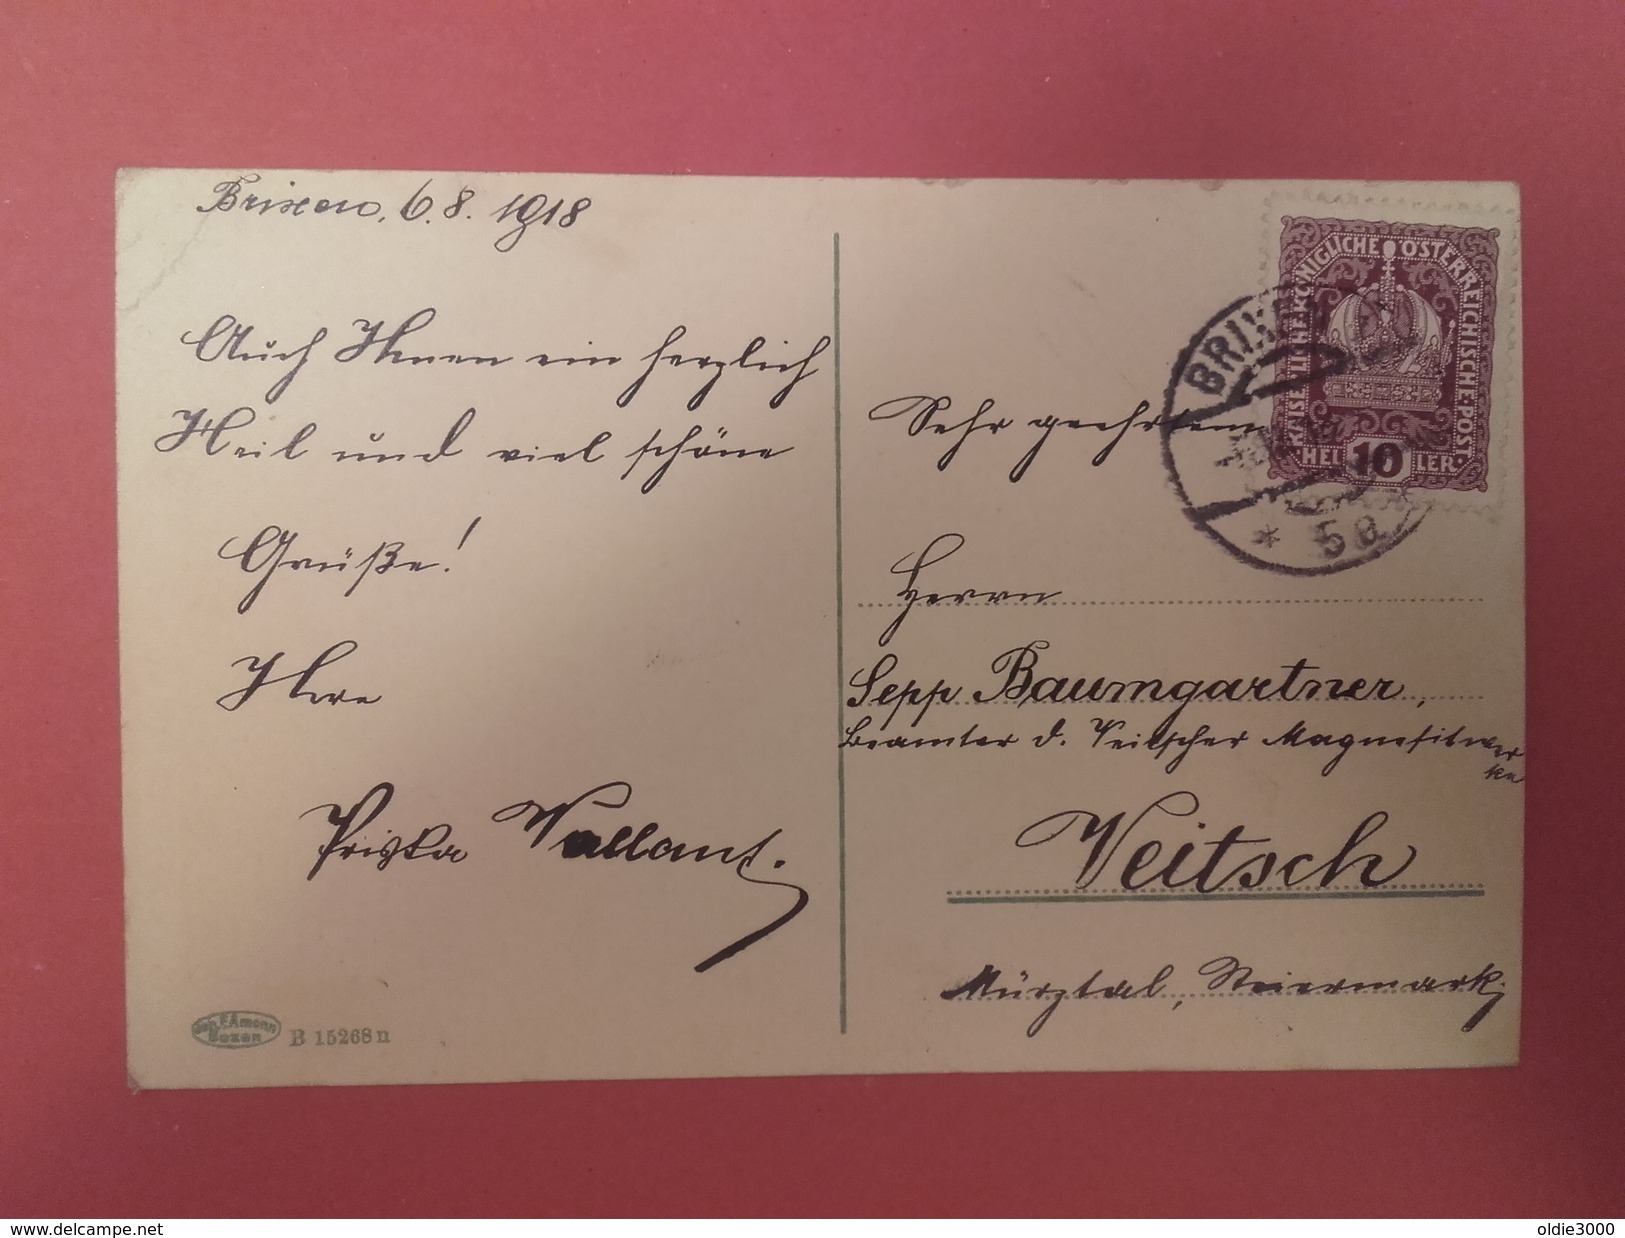 Brixen, 6.8.1918
Auch Ihnen ein herzlich
Heil und viel schöne
Grüße!
Ihre
Vallant.
Joh. F. Amonn
Bozen
B 15268 n
KAISERLICHE KÖNIGLICHE ÖSTERREICHISCHE POST
HELLER
10
BRIXEN
* 5a
Sehr geehrtem
Herrn
Sepp Baumgartner,
Beamter d. Veitscher Magnesitwer
ke
Veitsch
Mürztal, Steiermark,
www.delcampe.net
oldie3000